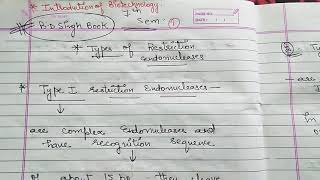 * Introduction of Biotechnology
7th
B.D Singh Book
Sem - 1
* Types of Restriction
endonucleases
* Type I restriction Endonucleases -
are complex Endonucleases and
have recognition sequence
of about 15 bp. they cleave
are
In